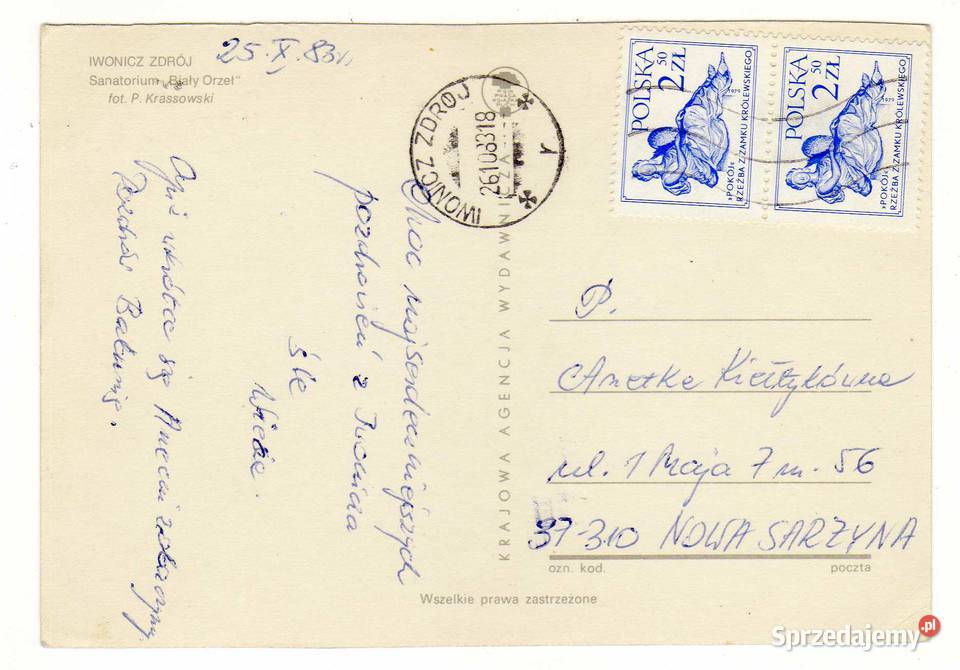 IWONICZ ZDRÓJ
Sanatorium „Biały Orzeł"
fot. P. Krassowski
25.X.83r.
IWONICZ ZDRÓJ
26108318
r
POLSKA
2 50 ZŁ
1979
»POKÓJ«
RZEŹBA Z ZAMKU KRÓLEWSKIEGO
POLSKA
2 50 ZŁ
1979
»POKÓJ«
RZEŹBA Z ZAMKU KRÓLEWSKIEGO
Moc najserdeczniejszych
pozdrowień z
śle
się
Pozdrów Babunię.
KRAJOWA AGENCJA WYDAWNICZA
P.
Anetka Kiełtykówna
ul. 1 Maja 7 m. 56
37-310 NOWA SARZYNA
ozn. kod.
poczta
Wszelkie prawa zastrzeżone
Sprzedajemy.pl